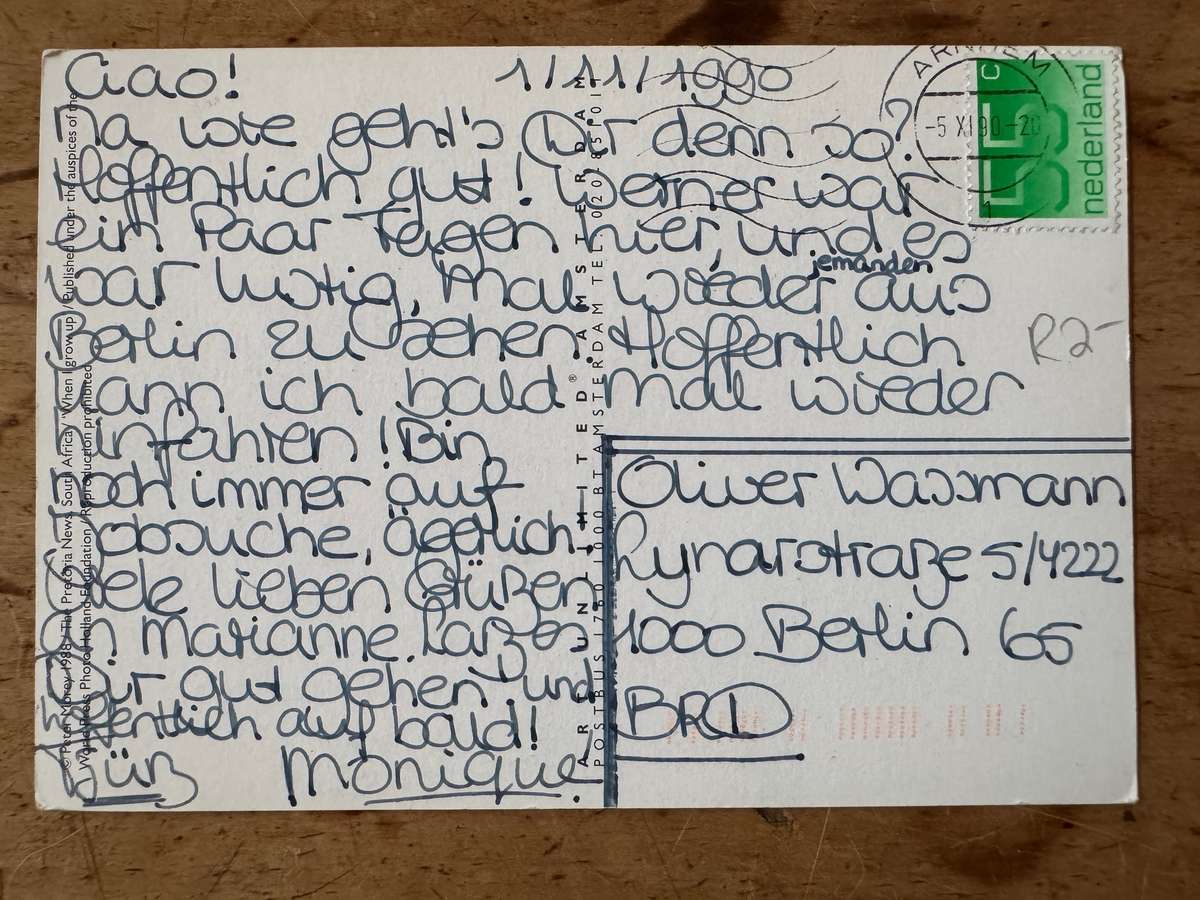 Ciao! 1/11/1990
Na wie geht's Dir denn so?
Hoffentlich gut! Werner war
ein Paar Tagen hier, und es
jemanden
war lustig, mal wieder aus
Berlin zu sehen. Hoffentlich
kann ich bald mal wieder
hinfahren! Bin
noch immer auf
Jobsuche, ägerlich.
Viele lieben Grüßen
an Marianne. Laß es
Dir gut gehen und
hoffentlich auf bald!
Monique
Oliver Wassmann
Lynarstraße 5/4222
1000 Berlin 65
BRD
R2-
ARNHEM
-5 XI 90-20
1
55
c
nederland
ART UNLIMITED® AMSTERDAM
POSTBUS 1760 1000 BT AMSTERDAM TEL 020-851011
© Peter Morey 1988 / The Pretoria News, South Africa / 'When I grow up' Published under the auspices of the
World Press Photo Holland Foundation / Reproduction prohibited